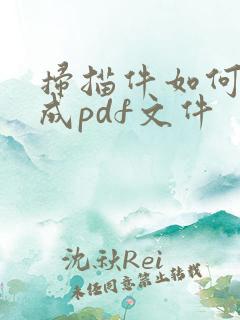 掃描件如何
成pdf文件
沈秋Rei
未经同意禁止转载